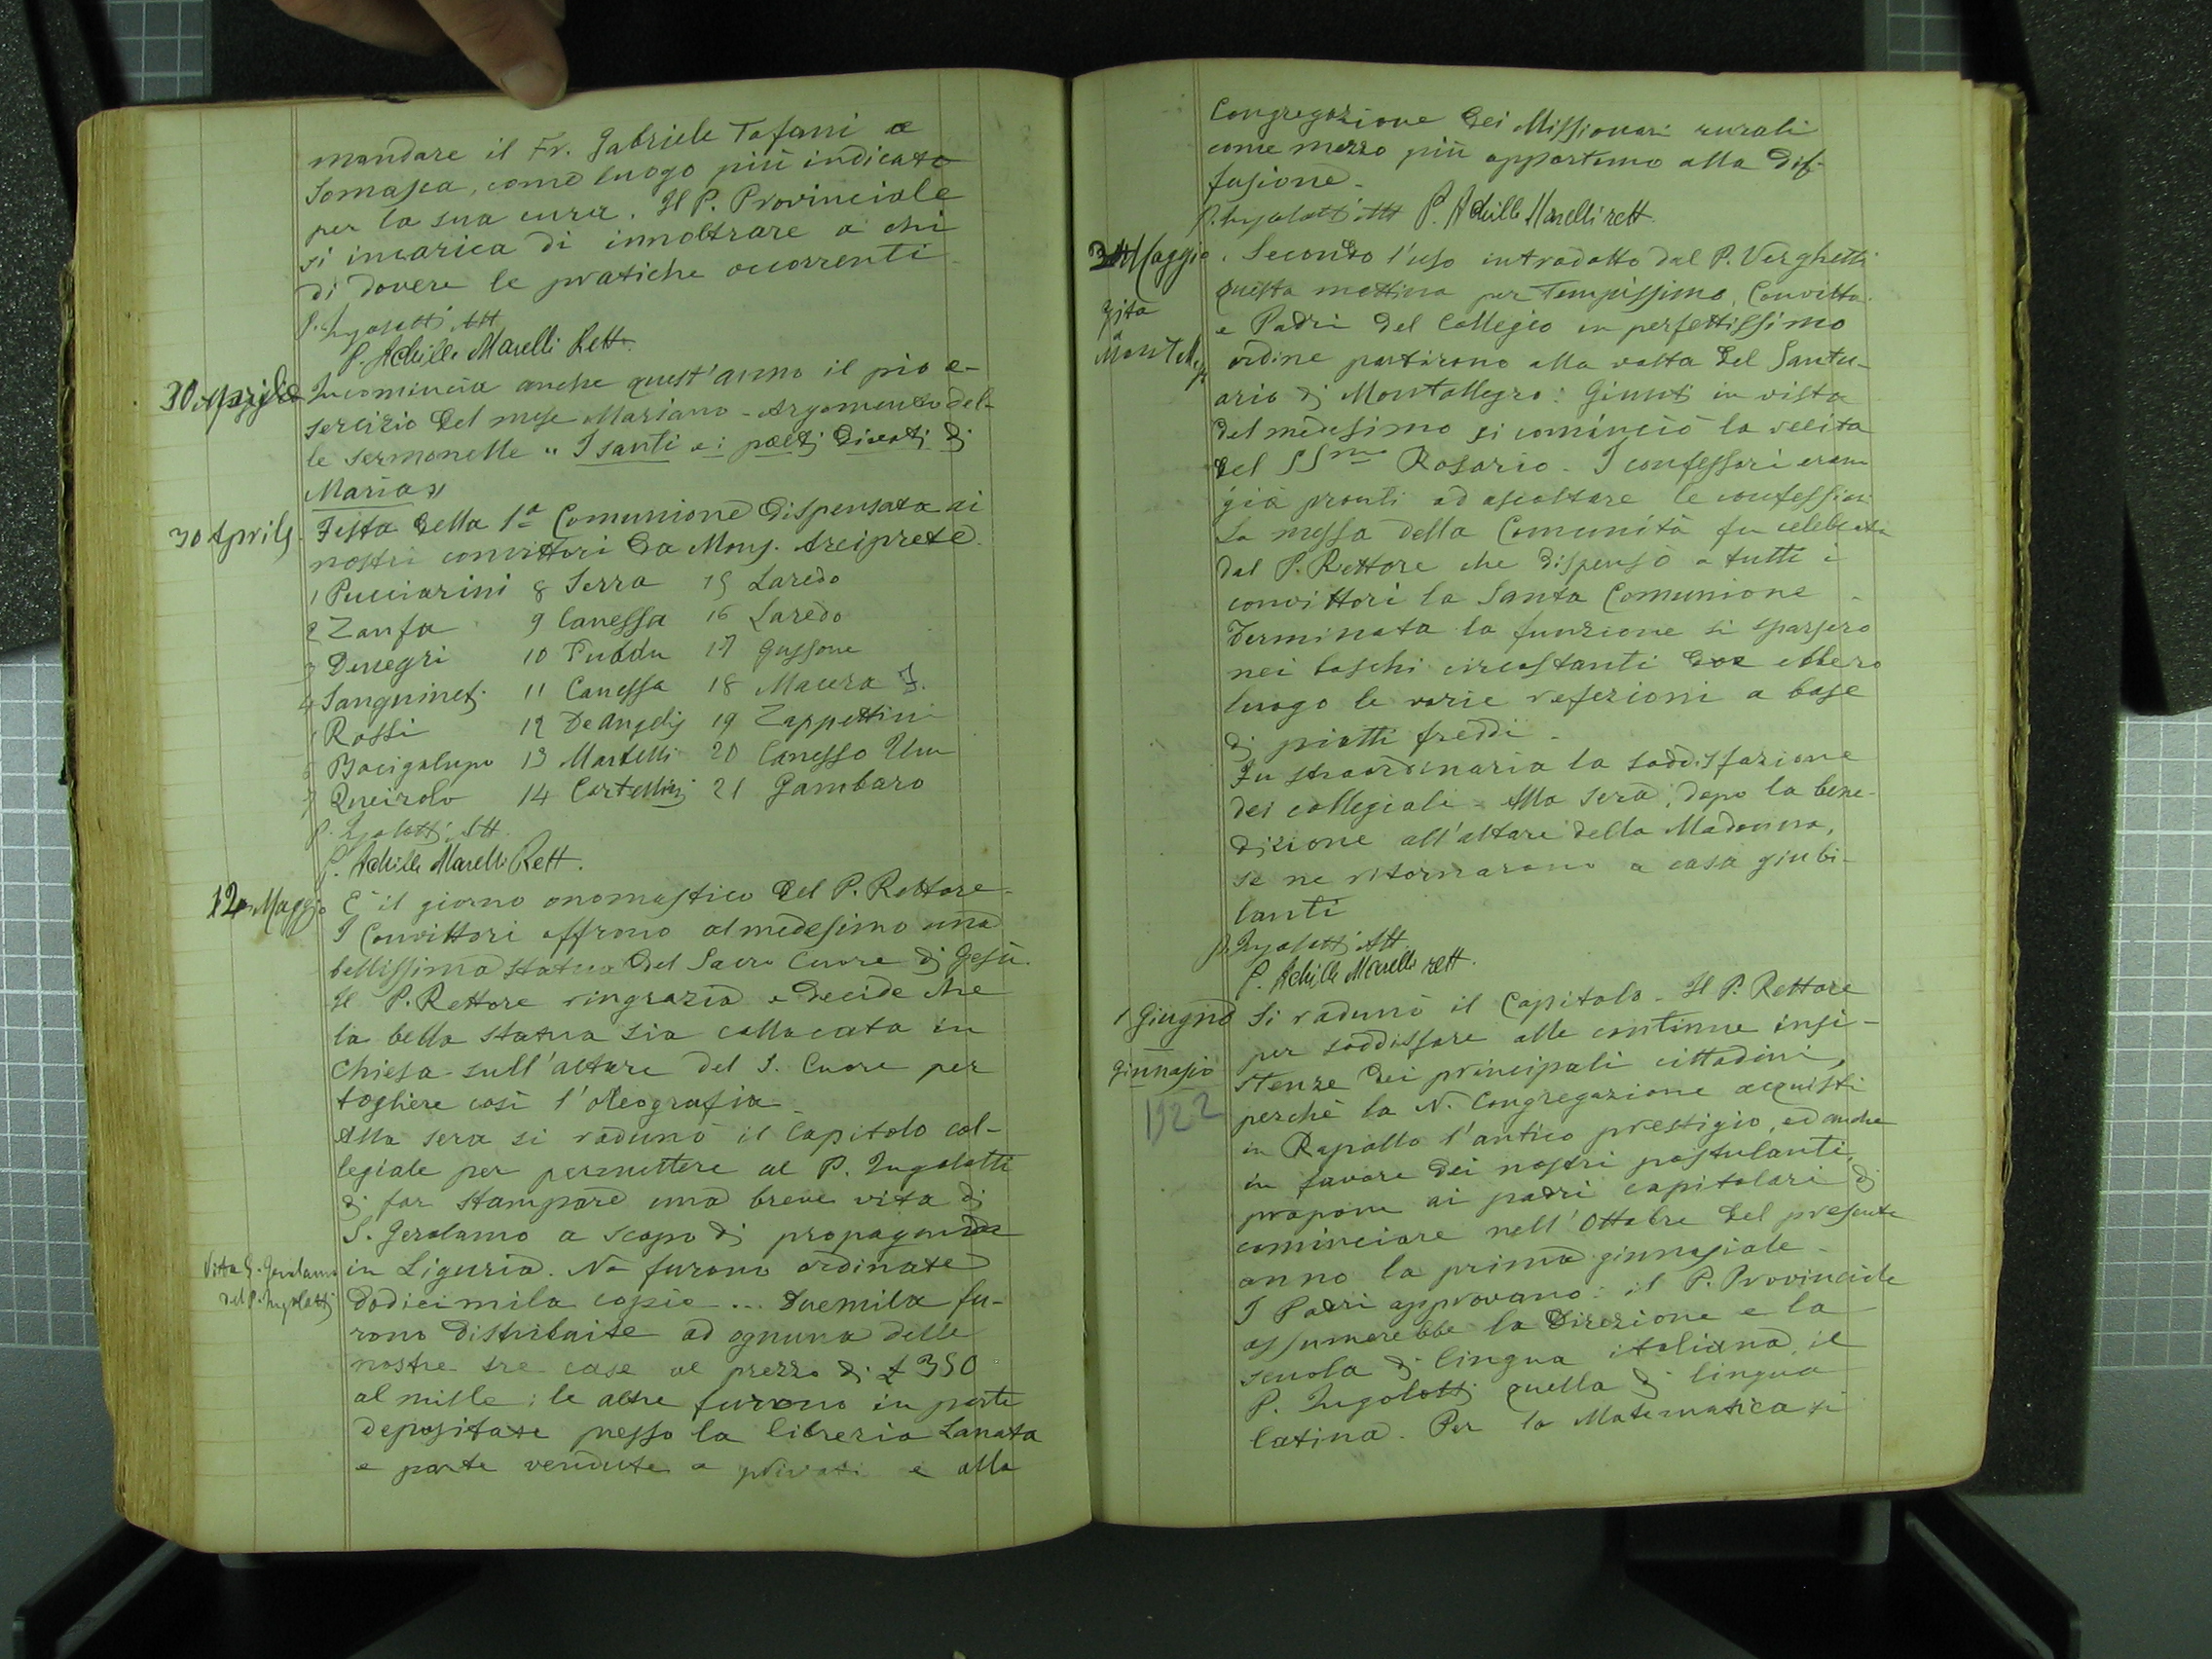 mandare il Fr. Gabriele Tofani a
Somasca, come luogo più indicato
per la sua cura. Il P. Provinciale
si incarica di innoltrare a chi
di dovere le pratiche occorrenti.
P. Ingolotti Att
P. Achille Marelli Rett.
30 Aprile
Incomincia anche quest'anno il pio e-
sercizio del mese Mariano - Argomento del-
le sermonelle "I santi e i poeti divoti di
Maria"
30 Aprile.
Festa della 1ª Comunione dispensata ai
nostri convittori da Mons. Arciprete.
1 Pucciarini 8 Serra 15 Laredo
2 Zanfa 9 Canessa 16 Laredo
3 Denegri 10 Puddu 17 Gussone
4 Sanguineti 11 Canessa 18 Macera F.
Rossi 12 De Angelis 19 Zappettini
6 Bacigalupo 13 Martelli 20 Canesso Um
7 Queirolo 14 Cortellini 21 Gambaro
P. Ingolotti Att.
P. Achille Marelli Rett.
12 Maggio
È il giorno onomastico del P. Rettore.
I Convittori offrono al medesimo una
bellissima statua del Sacro Cuore di Gesù.
Il P. Rettore ringrazia e decide che
la bella statua sia collocata in
Chiesa sull'altare del S. Cuore per
togliere così l'oleografia.
Alla sera si radunò il Capitolo col-
legiale per permettere al P. Ingolotti
di far stampare una breve vita di
S. Gerolamo a scopo di propaganda
Vita S. Gerolamo
del P. Ingolotti
in Liguria. Ne furono ordinate
dodicimila copie ... Duemila fu-
rono distribuite ad ognuna delle
nostre tre case al prezzo di £ 350
al mille: le altre furono in parte
depositate presso la libreria Lanata
e parte vendute a privati e alla
Congregazione dei Missionari rurali
come mezzo più opportuno alla dif-
fusione.
P. Ingolotti Att P. Achille Marelli rett.
Maggio.
Gita
a
Mont Alleg
Secondo l'uso introdotto dal P. Verghetti
questa mattina per tempissimo, Convitto
e Padri del Collegio in perfettissimo
ordine partirono alla volta del Santu-
ario di Montallegro: Giunti in vista
del medesimo si cominciò la recita
del SSmo Rosario. I confessori eran
già pronti ad ascoltare le confessioni
La messa della Comunità fu celebrata
dal P. Rettore che dispensò a tutti i
convittori la Santa Comunione.
Terminata la funzione si sparsero
nei boschi circostanti dove ebbero
luogo le varie refezioni a base
di piatti freddi.
Fu straordinaria la soddisfazione
dei collegiali - Alla sera, dopo la bene-
dizione all'altare della Madonna,
se ne ritornarono a casa giubi-
lanti
P. Ingolotti Att.
P. Achille Marelli rett.
1 Giugno
Ginnasio
1922
Si radunò il Capitolo - Il P. Rettore
per soddisfare alle continue insi-
stenze dei principali cittadini,
perchè la N. Congregazione acquisti
in Rapallo l'antico prestigio, ed anche
in favore dei nostri postulanti,
propone ai padri capitolari di
cominciare nell'Ottobre del presente
anno la prima ginnasiale.
I Padri approvano: il P. Provinciale
assumerebbe la Direzione e la
scuola di lingua italiana, il
P. Ingolotti quella di lingua
latina. Per la Matematica si